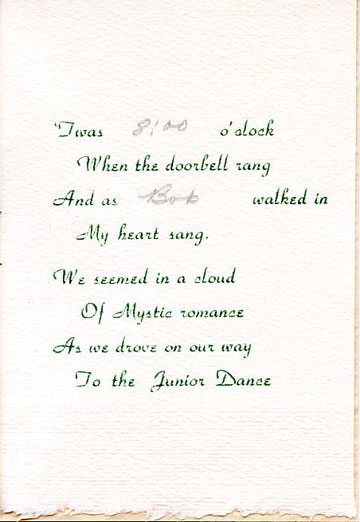 'Twas 8:00 o'clock
When the doorbell rang
And as Bob walked in
My heart sang.
We seemed in a cloud
Of Mystic romance
As we drove on our way
To the Junior Dance